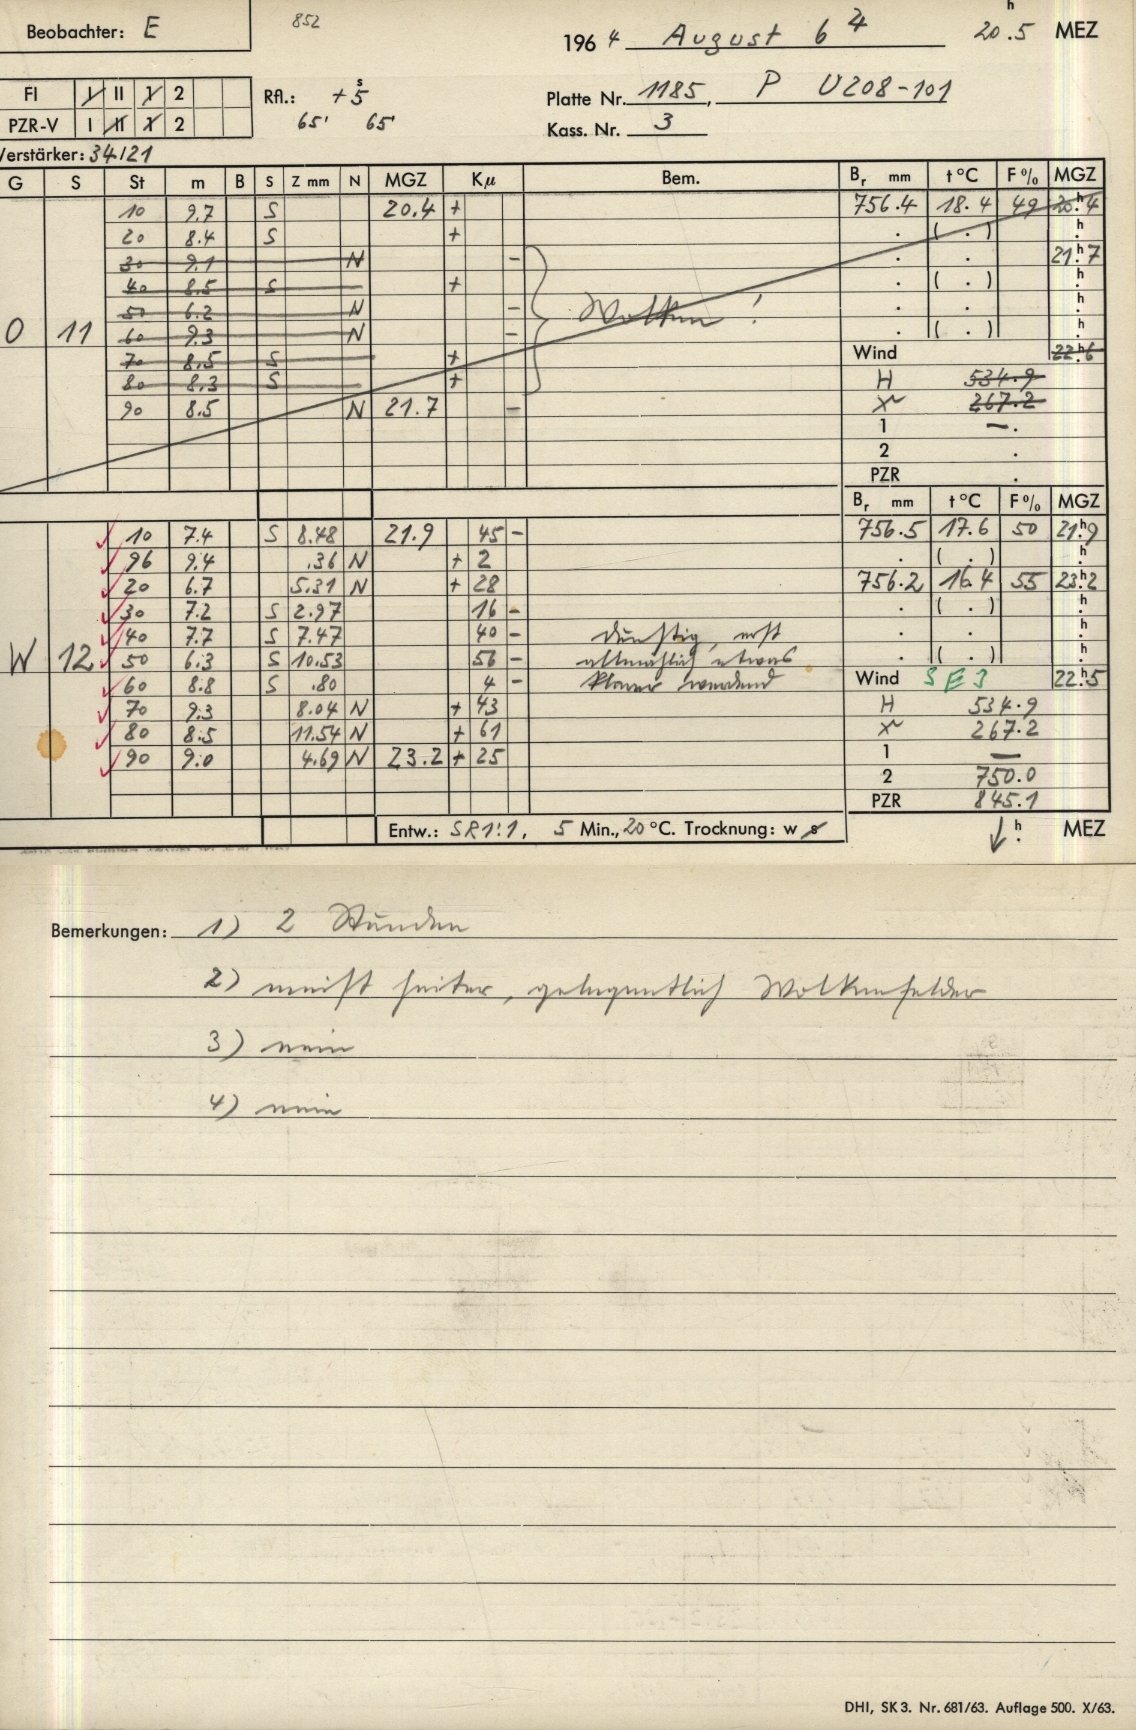 Beobachter: E 852 1964 August 6 20.5 h MEZ
FI I II 1 2 Rfl.: +5 s Platte Nr. 1185, P U208-101
PZR-V I II 1 2 65' 65' Kass. Nr. 3
Verstärker: 34/21
G S St m B S Z mm N MGZ Kμ Bem. Br mm t °C F % MGZ
10 9.7 S 20.4 + 756.4 18.4 49 20.4 h
20 8.4 S + . ( . ) h .
30 9.1 N - . . 21.7 h
40 8.5 S + . ( . ) h .
50 6.2 N - . . h .
O 11 60 9.3 N - Wolken! . ( . ) h .
70 8.5 S + Wind 22.6 h
80 8.3 S + H 534.9
90 8.5 N 21.7 - 267.2
1 — .
2 .
PZR .
Br mm t °C F % MGZ
10 7.4 S 8.48 21.9 45 - 756.5 17.6 50 21.9 h
96 9.4 .36 N + 2 . ( . ) h .
20 6.7 5.31 N + 28 756.2 16.4 55 23.2 h
30 7.2 S 2.97 16 - . ( . ) h .
40 7.7 S 7.47 40 - dunstig, erst . . h .
W 12 50 6.3 S 10.53 56 - allmählich etwas . ( . ) h .
60 8.8 S .80 4 - klarer werdend Wind SE3 22.5 h
70 9.3 8.04 N + 43 H 534.9
80 8.5 11.54 N + 61 267.2
90 9.0 4.69 N 23.2 + 25 1 —
2 750.0
PZR 845.1
Entw.: SR1:1, 5 Min., 20 °C. Trocknung: w s h . MEZ
Bemerkungen: 1) 2 Stunden
2) meist heiter, gelegentlich Wolkenfelder
3) nein
4) nein
DHI, SK 3. Nr. 681/63. Auflage 500. X/63.